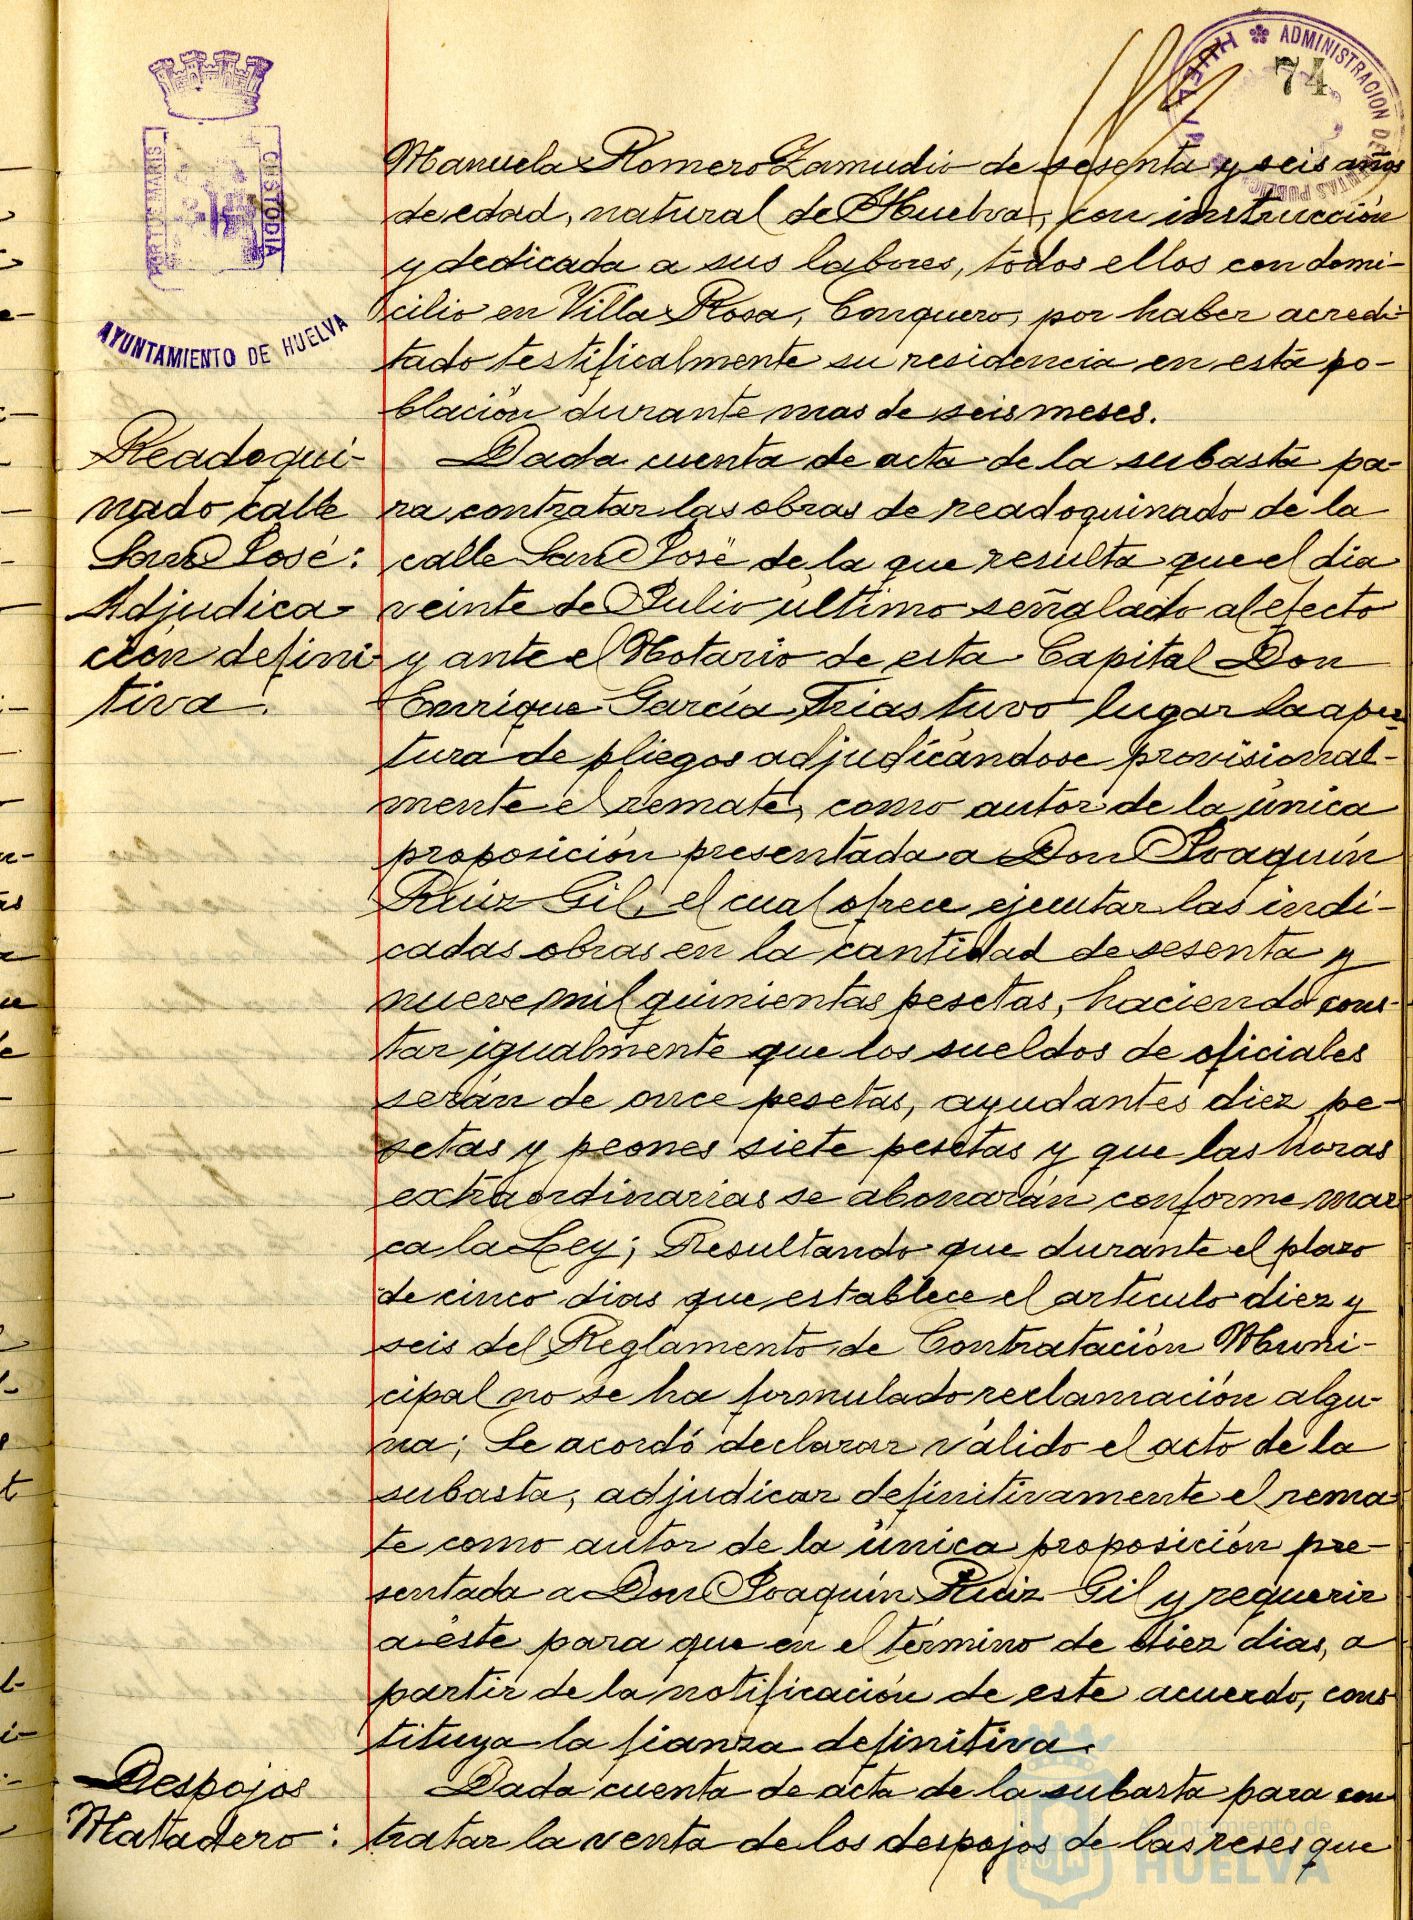 74
HUELVA ADMINISTRACION DE
PORTUS MARIS
CUSTODIA
AYUNTAMIENTO DE HUELVA
Manuela Romero Zamudio de sesenta y seis años
de edad, natural de Huelva, con instrucción
y dedicada a sus labores, todos ellos con domi-
cilio en Villa Rosa, Conquero, por haber acredi-
tado testificalmente su residencia en esta po-
blación durante mas de seis meses.
Readoqui-
nado calle
San José:
Adjudica-
ción defini-
tiva.
Dada cuenta de acta de la subasta pa-
ra contratar las obras de readoquinado de la
calle San José de la que resulta que el dia
veinte de Julio último señalado al efecto
y ante el Notario de esta Capital Don
Enrique García Trias tuvo lugar la aper-
tura de pliegos adjudicándose provisional-
mente el remate, como autor de la única
proposición presentada a Don Joaquín
Ruiz Gil, el cual ofrece ejecutar las indi-
cadas obras en la cantidad de sesenta y
nueve mil quinientas pesetas, haciendo cons-
tar igualmente que los sueldos de oficiales
serán de once pesetas, ayudantes diez pe-
setas y peones siete pesetas y que las horas
extraordinarias se abonarán conforme mar-
ca la Ley; Resultando que durante el plazo
de cinco dias que establece el articulo diez y
seis del Reglamento de Contratación Muni-
cipal no se ha formulado reclamación algu-
na; Se acordó declarar válido el acto de la
subasta, adjudicar definitivamente el rema-
te como autor de la única proposición pre-
sentada a Don Joaquín Ruiz Gil y requerir
a éste para que en el término de diez dias, a
partir de la notificación de este acuerdo, cons-
tituya la fianza definitiva.
Despojos
Matadero:
Dada cuenta de acta de la subasta para con
tratar la venta de los despojos de las reses que
Ayuntamiento de
HUELVA